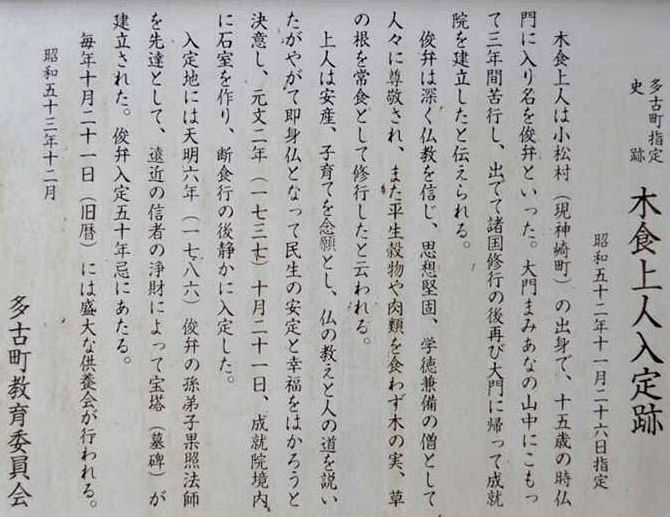 多古町指定
史跡
木食上人入定跡
昭和五十二年十一月二十六日指定
木食上人は小松村（現神崎町）の出身で、十五歳の時仏
門に入り名を俊弁といった。大門まみあなの山中にこもっ
て三年間苦行し、出でて諸国修行の後再び大門に帰って成就
院を建立したと伝えられる。
俊弁は深く仏教を信じ、思想堅固、学徳兼備の僧として
人々に尊敬され、また平生穀物や肉類を食わず木の実、草
の根を常食として修行したと云われる。
上人は安産、子育てを念願とし、仏の教えと人の道を説い
たがやがて即身仏となって民生の安定と幸福をはかろうと
決意し、元文二年（一七三七）十月二十一日、成就院境内
に石室を作り、断食行の後静かに入定した。
入定地には天明六年（一七八六）俊弁の孫弟子果照法師
を先達として、遠近の信者の浄財によって宝塔（墓碑）が
建立された。俊弁入定五十年忌にあたる。
毎年十月二十一日（旧暦）には盛大な供養会が行われる。
昭和五十三年十二月
多古町教育委員会